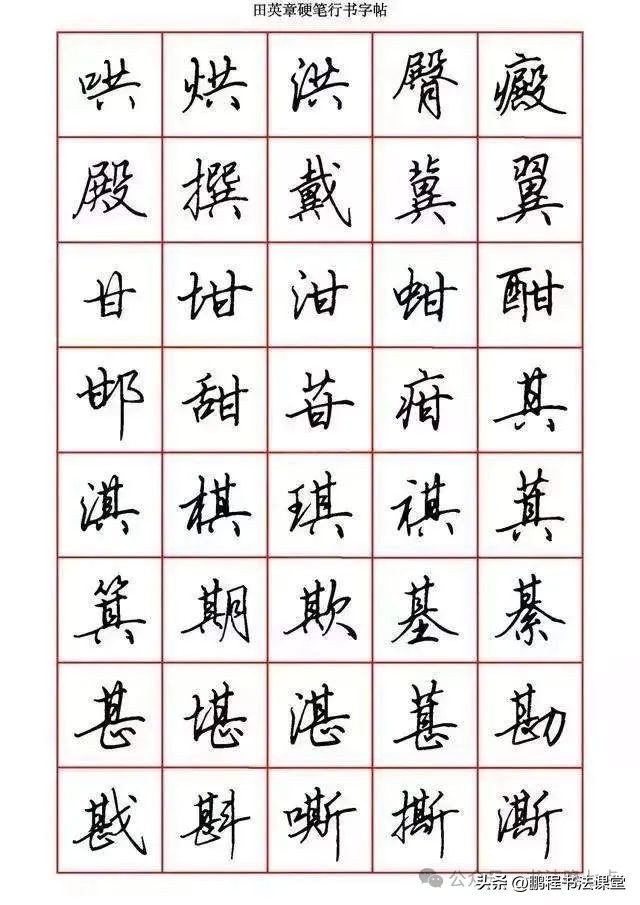 田英章硬笔行书字帖
哄烘洪臀癜
殿撰戴冀翼
甘坩泔蚶酣
邯甜苷疳其
淇棋琪祺萁
箕期欺基綦
甚堪湛葚勘
戡斟嘶撕澌
头条@鹏程书法课堂